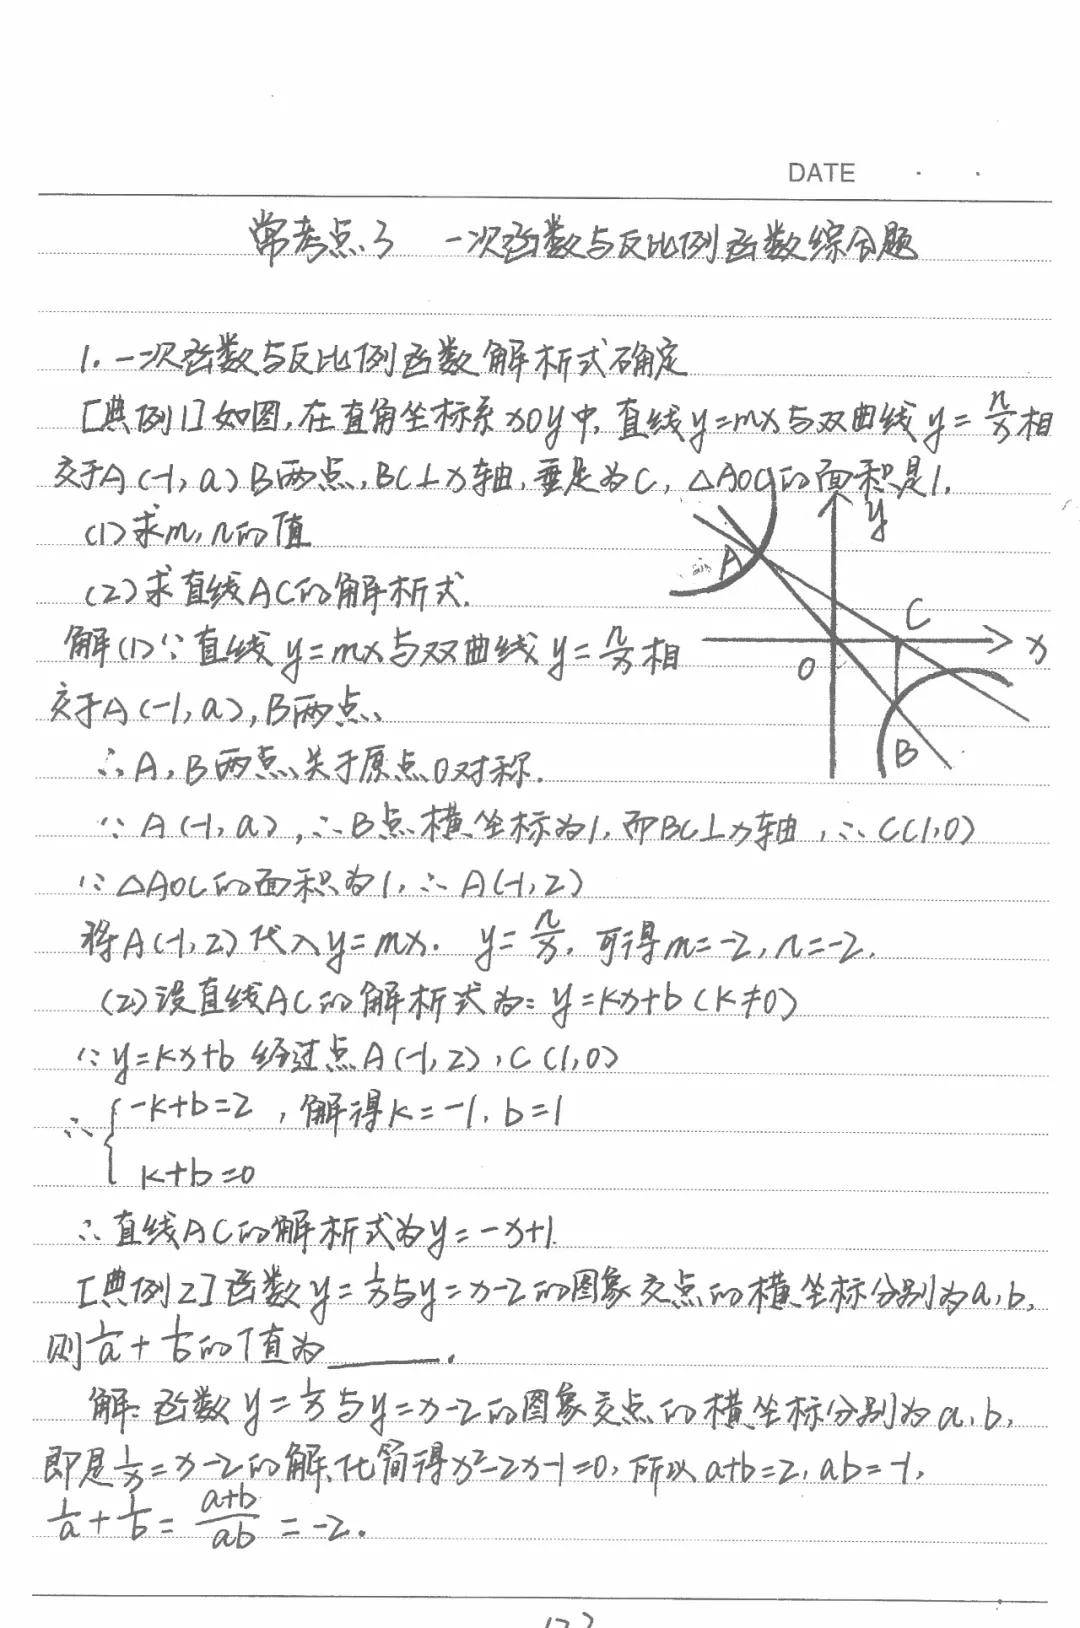 DATE
常考点3 一次函数与反比例函数综合题
1.一次函数与反比例函数解析式确定
[典例1]如图,在直角坐标系xOy中,直线y=mx与双曲线y=n/x相
交于A(-1,a)B两点,BC⊥x轴,垂足为C,△AOC的面积是1.
(1)求m,n的值
(2)求直线AC的解析式.
y
A
C
x
O
B
解(1)∵直线y=mx与双曲线y=n/x相
交于A(-1,a),B两点、
∴A,B两点关于原点O对称.
∵A(-1,a),∴B点横坐标为1,而BC⊥x轴,∴C(1,0)
∵△AOC的面积为1,∴A(-1,2)
将A(-1,2)代入y=mx. y=n/x.可得m=-2,n=-2.
(2)设直线AC的解析式为:y=kx+b(k≠0)
∵y=kx+b经过点A(-1,2),C(1,0)
∴{-k+b=2 ,解得k=-1,b=1
k+b=0
∴直线AC的解析式为y=-x+1.
[典例2]函数y=1/x与y=x-2的图象交点的横坐标分别为a,b,
则1/a+1/b的值为______.
解:函数y=1/x与y=x-2的图象交点的横坐标分别为a,b,
即是1/x=x-2的解,化简得x²-2x-1=0,所以a+b=2,ab=-1,
1/a+1/b=(a+b)/ab=-2.